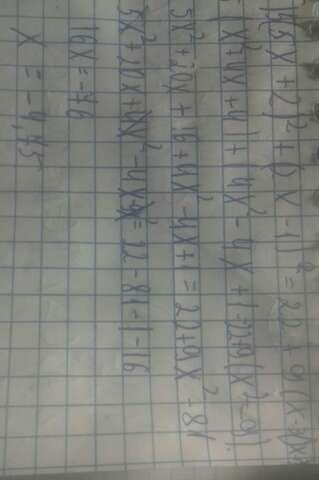 (x + 2)² + ( x - 1)² = 22 + 9(x
(x²+4x+4)+(4x²-4x+1=22+9(x²-9)
5x²+20x+16+4x²-4x+1=22+9x²-81
5x²+20x+4x²-4x-9x²=22-81-1-16
16x=-76
x = -4,75